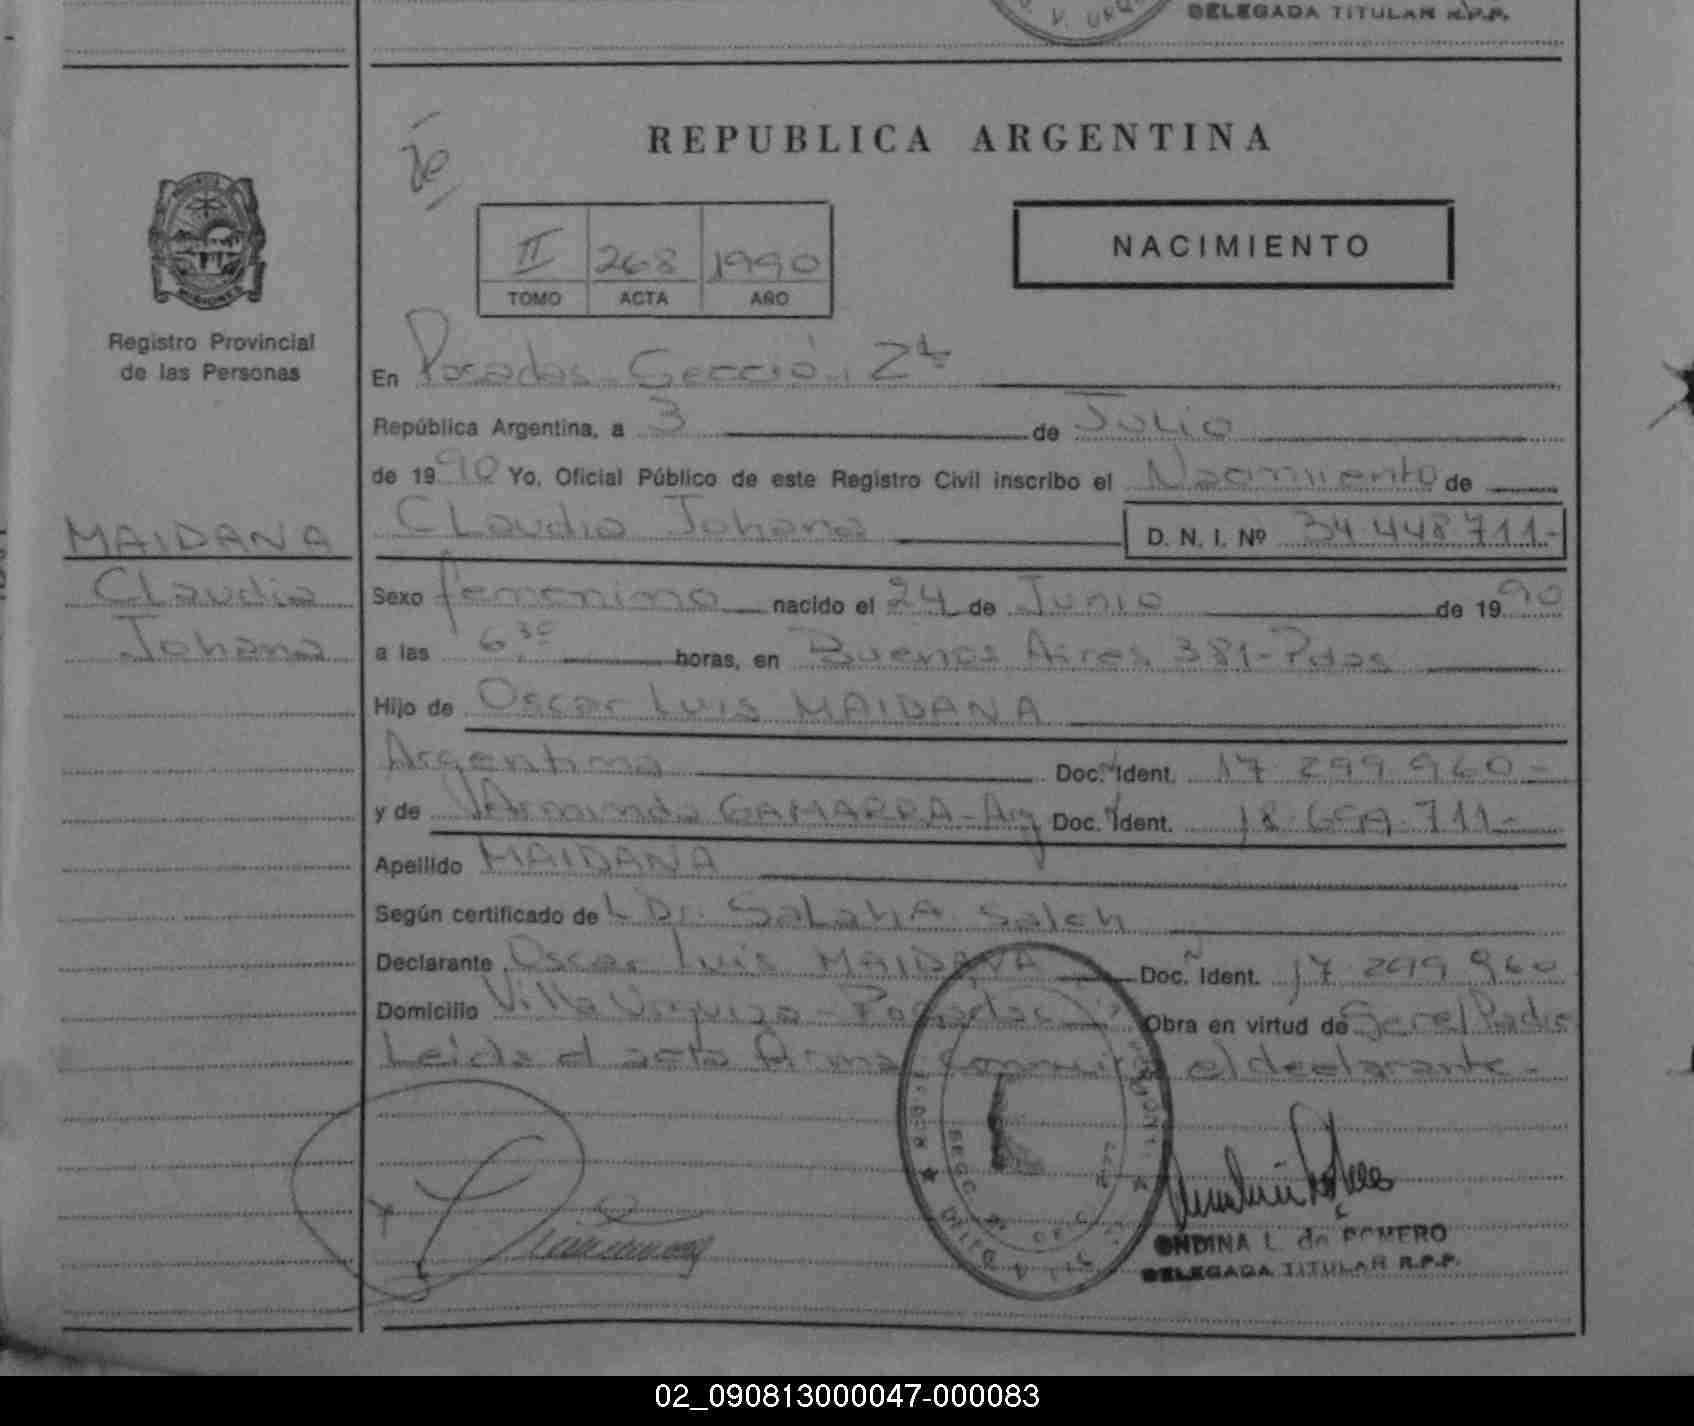 V. URQ
DELEGADA TITULAR R.P.P.
REPUBLICA ARGENTINA
II 268 1990
TOMO ACTA AÑO
NACIMIENTO
MISIONES
Registro Provincial
de las Personas
En Posadas Sección 2da
República Argentina, a 3 de Julio
de 1990 Yo, Oficial Público de este Registro Civil inscribo el Nacimiento de
MAIDANA
Claudia Johana D. N. I. Nº 34.448.711-
Claudia
Johana
Sexo femenino nacido el 24 de Junio de 1990
a las 6,30 horas, en Buenos Aires 381-Pdas
Hijo de Oscar Luis MAIDANA
Argentina Doc. Ident. 17.299.960-
y de Arminda GAMARRA-Arg Doc. Ident. 711-
Apellido MAIDANA
Según certificado de L Dr. Saleh
Declarante Oscar Luis MAIDANA Doc. Ident. 17.299.960
Domicilio Villa Urquiza-Posadas Obra en virtud de Padre
Leida el acta firma conmigo el declarante-
ONDINA L. de ROMERO
DELEGADA TITULAR R.P.P.
02_090813000047-000083